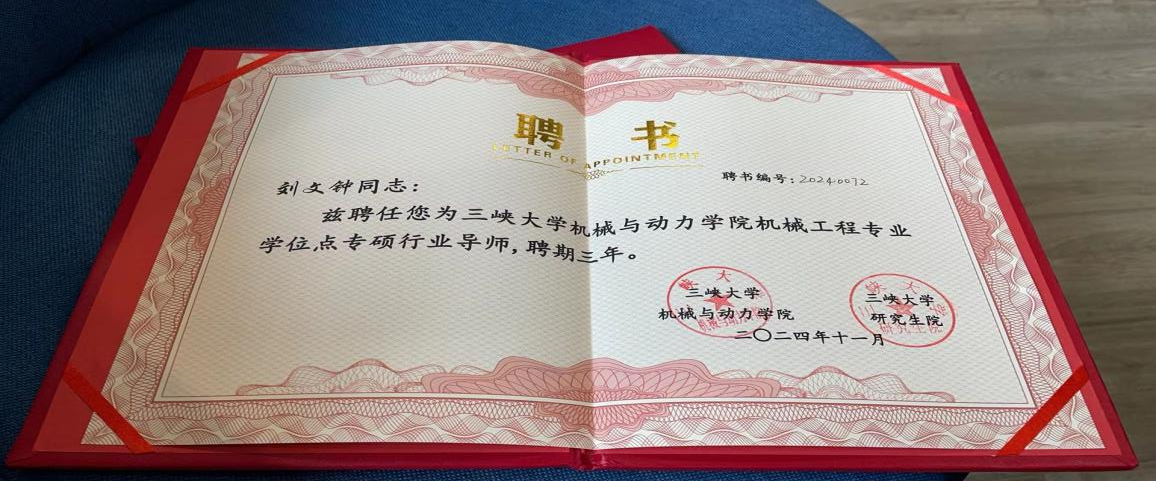 聘 书
LETTER OF APPOINTMENT
聘书编号：20240072
刘文钟同志：
兹聘任您为三峡大学机械与动力学院机械工程专业
学位点专硕行业导师，聘期三年。
三峡大学
机械与动力学院
三峡大学
研究生院
二〇二四年十一月
三峡大学
机械与动力学院
三峡大学
研究生院